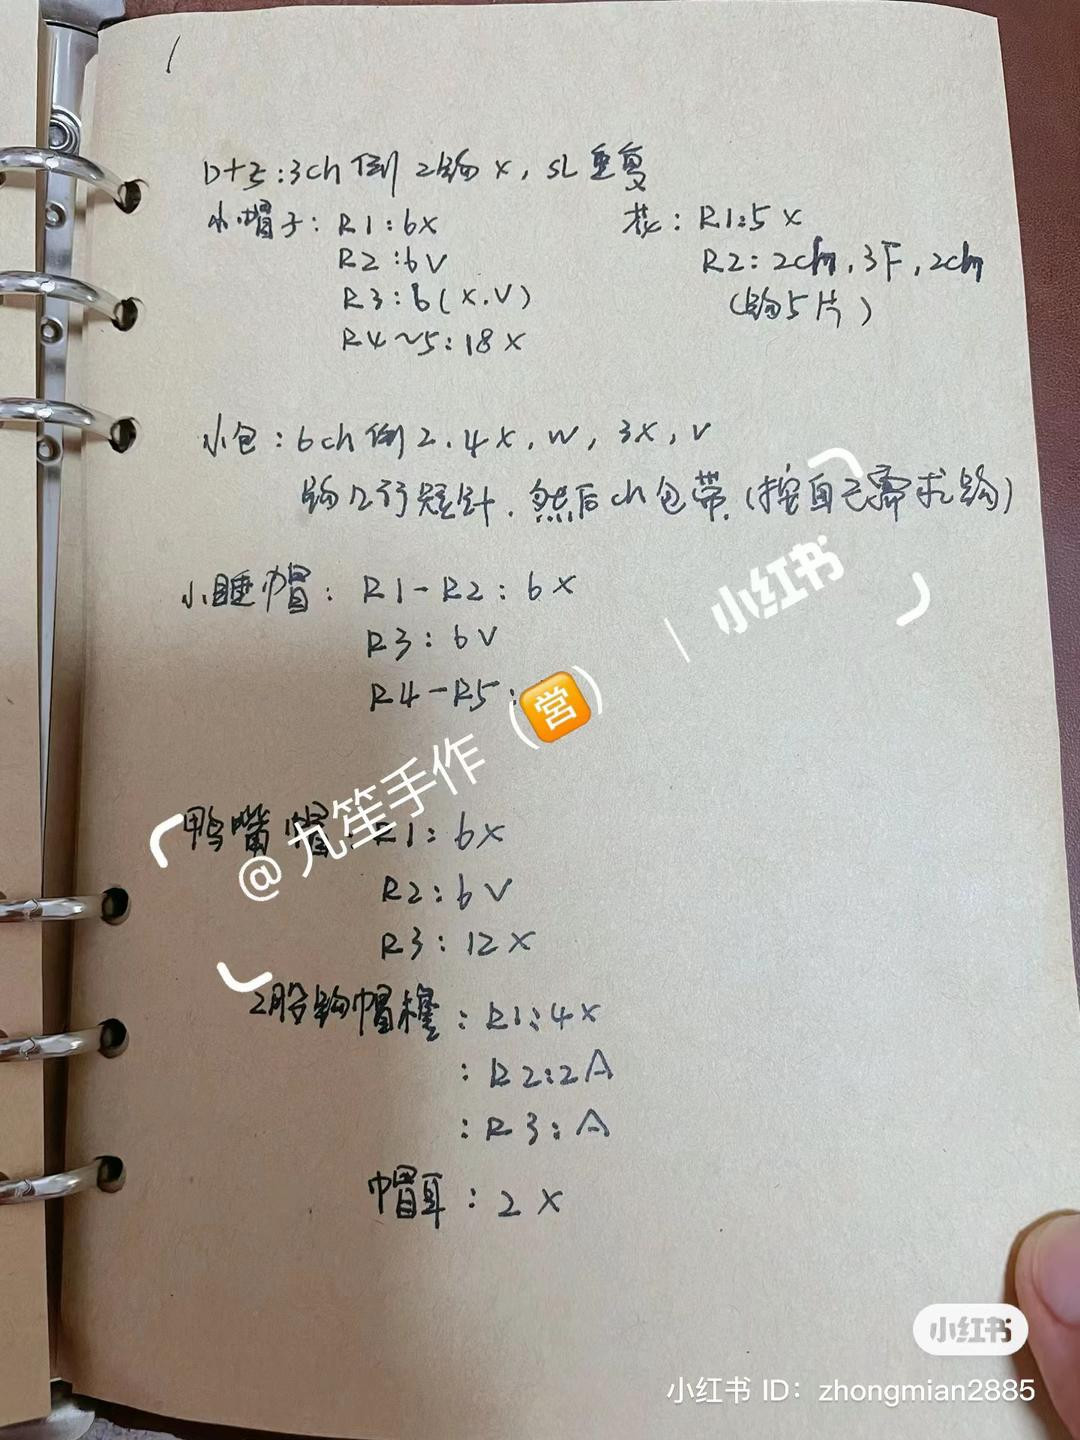 1
:3ch 倒2钩x,SL重复
小帽子:R1:6x
R2:6V
R3:6(x,V)
R4~5:18x
花:R1:5x
R2:2ch,3F,2ch
(钩5片)
小包:6ch倒2.4x,w,3x,v
钩几行短针.然后ch包带.(按自己需求钩)
小睡帽:R1-R2:6x
R3:6V
R4-R5:
鸭嘴帽:R1:6x
R2:6V
R3:12x
2股钩帽檐:R1:4x
:R2:2A
:R3:A
帽耳:2x
@九笙手作(営)
小红书
小红书
小红书 ID:zhongmian2885